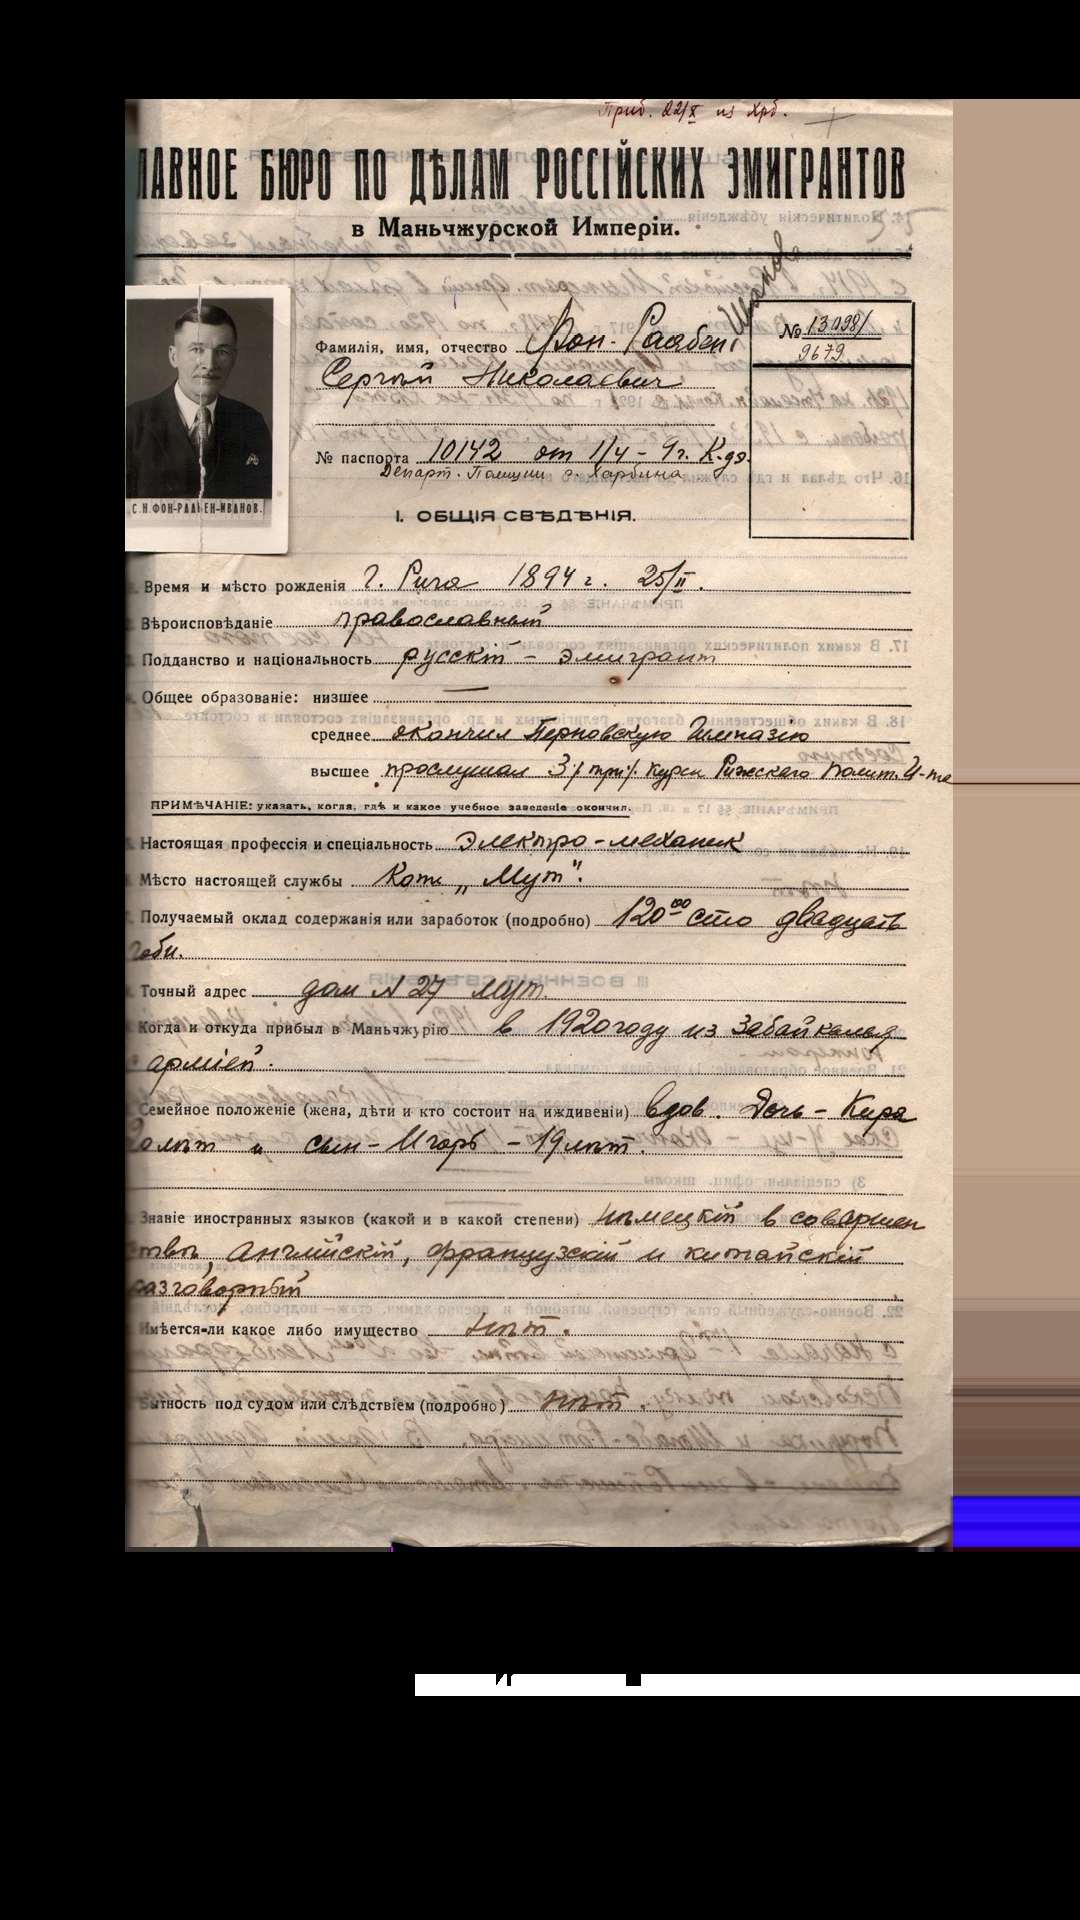 Приб. 22/X из Хрб.
ЛАВНОЕ БЮРО ПО ДѢЛАМ РОССІЙСКИХ ЭМИГРАНТОВ
в Маньчжурской Имперіи.
Фамилія, имя, отчество Фон-Раабен, Иванов
Сергѣй Николаевич
№ 13098/
9679
№ паспорта 10142 от 1/4 - 9 г. К-дэ.
Департ. Полиции г. Харбина
С.Н.ФОН-РААБЕН-ИВАНОВ.
I. ОБЩІЯ СВѢДѢНІЯ.
Время и мѣсто рожденія Г. Рига 1894 г. 25/II.
Вѣроисповѣданіе православный
Подданство и національность русскій - эмигрант
Общее образованіе: низшее —
среднее окончил Перновскую Гимназію
высшее прослушал 3/три/. курса Рижскаго Полит. И-та
ПРИМѢЧАНІЕ: указать, когда, гдѣ и какое учебное заведеніе окончил.
Настоящая профессія и спеціальность электро-механик
Мѣсто настоящей службы Копи „Мут".
Получаемый оклад содержанія или заработок (подробно) 120 00 сто двадцать
гоби.
Точный адрес дом № 27 Мут.
Когда и откуда прибыл в Маньчжурію в 1920 году из Забайкалья
арміей.
Семейное положеніе (жена, дѣти и кто состоит на иждивеніи) вдов. Дочь - Кира
лѣт и сын - Игорь - 19 лѣт.
Знаніе иностранных языков (какой и в какой степени) нѣмецкій в совершен
ствѣ, Английскій, французскій и китайскій
разговорный
Имѣется-ли какое либо имущество нѣт.
Бытность под судом или слѣдствіем (подробно) нѣт.